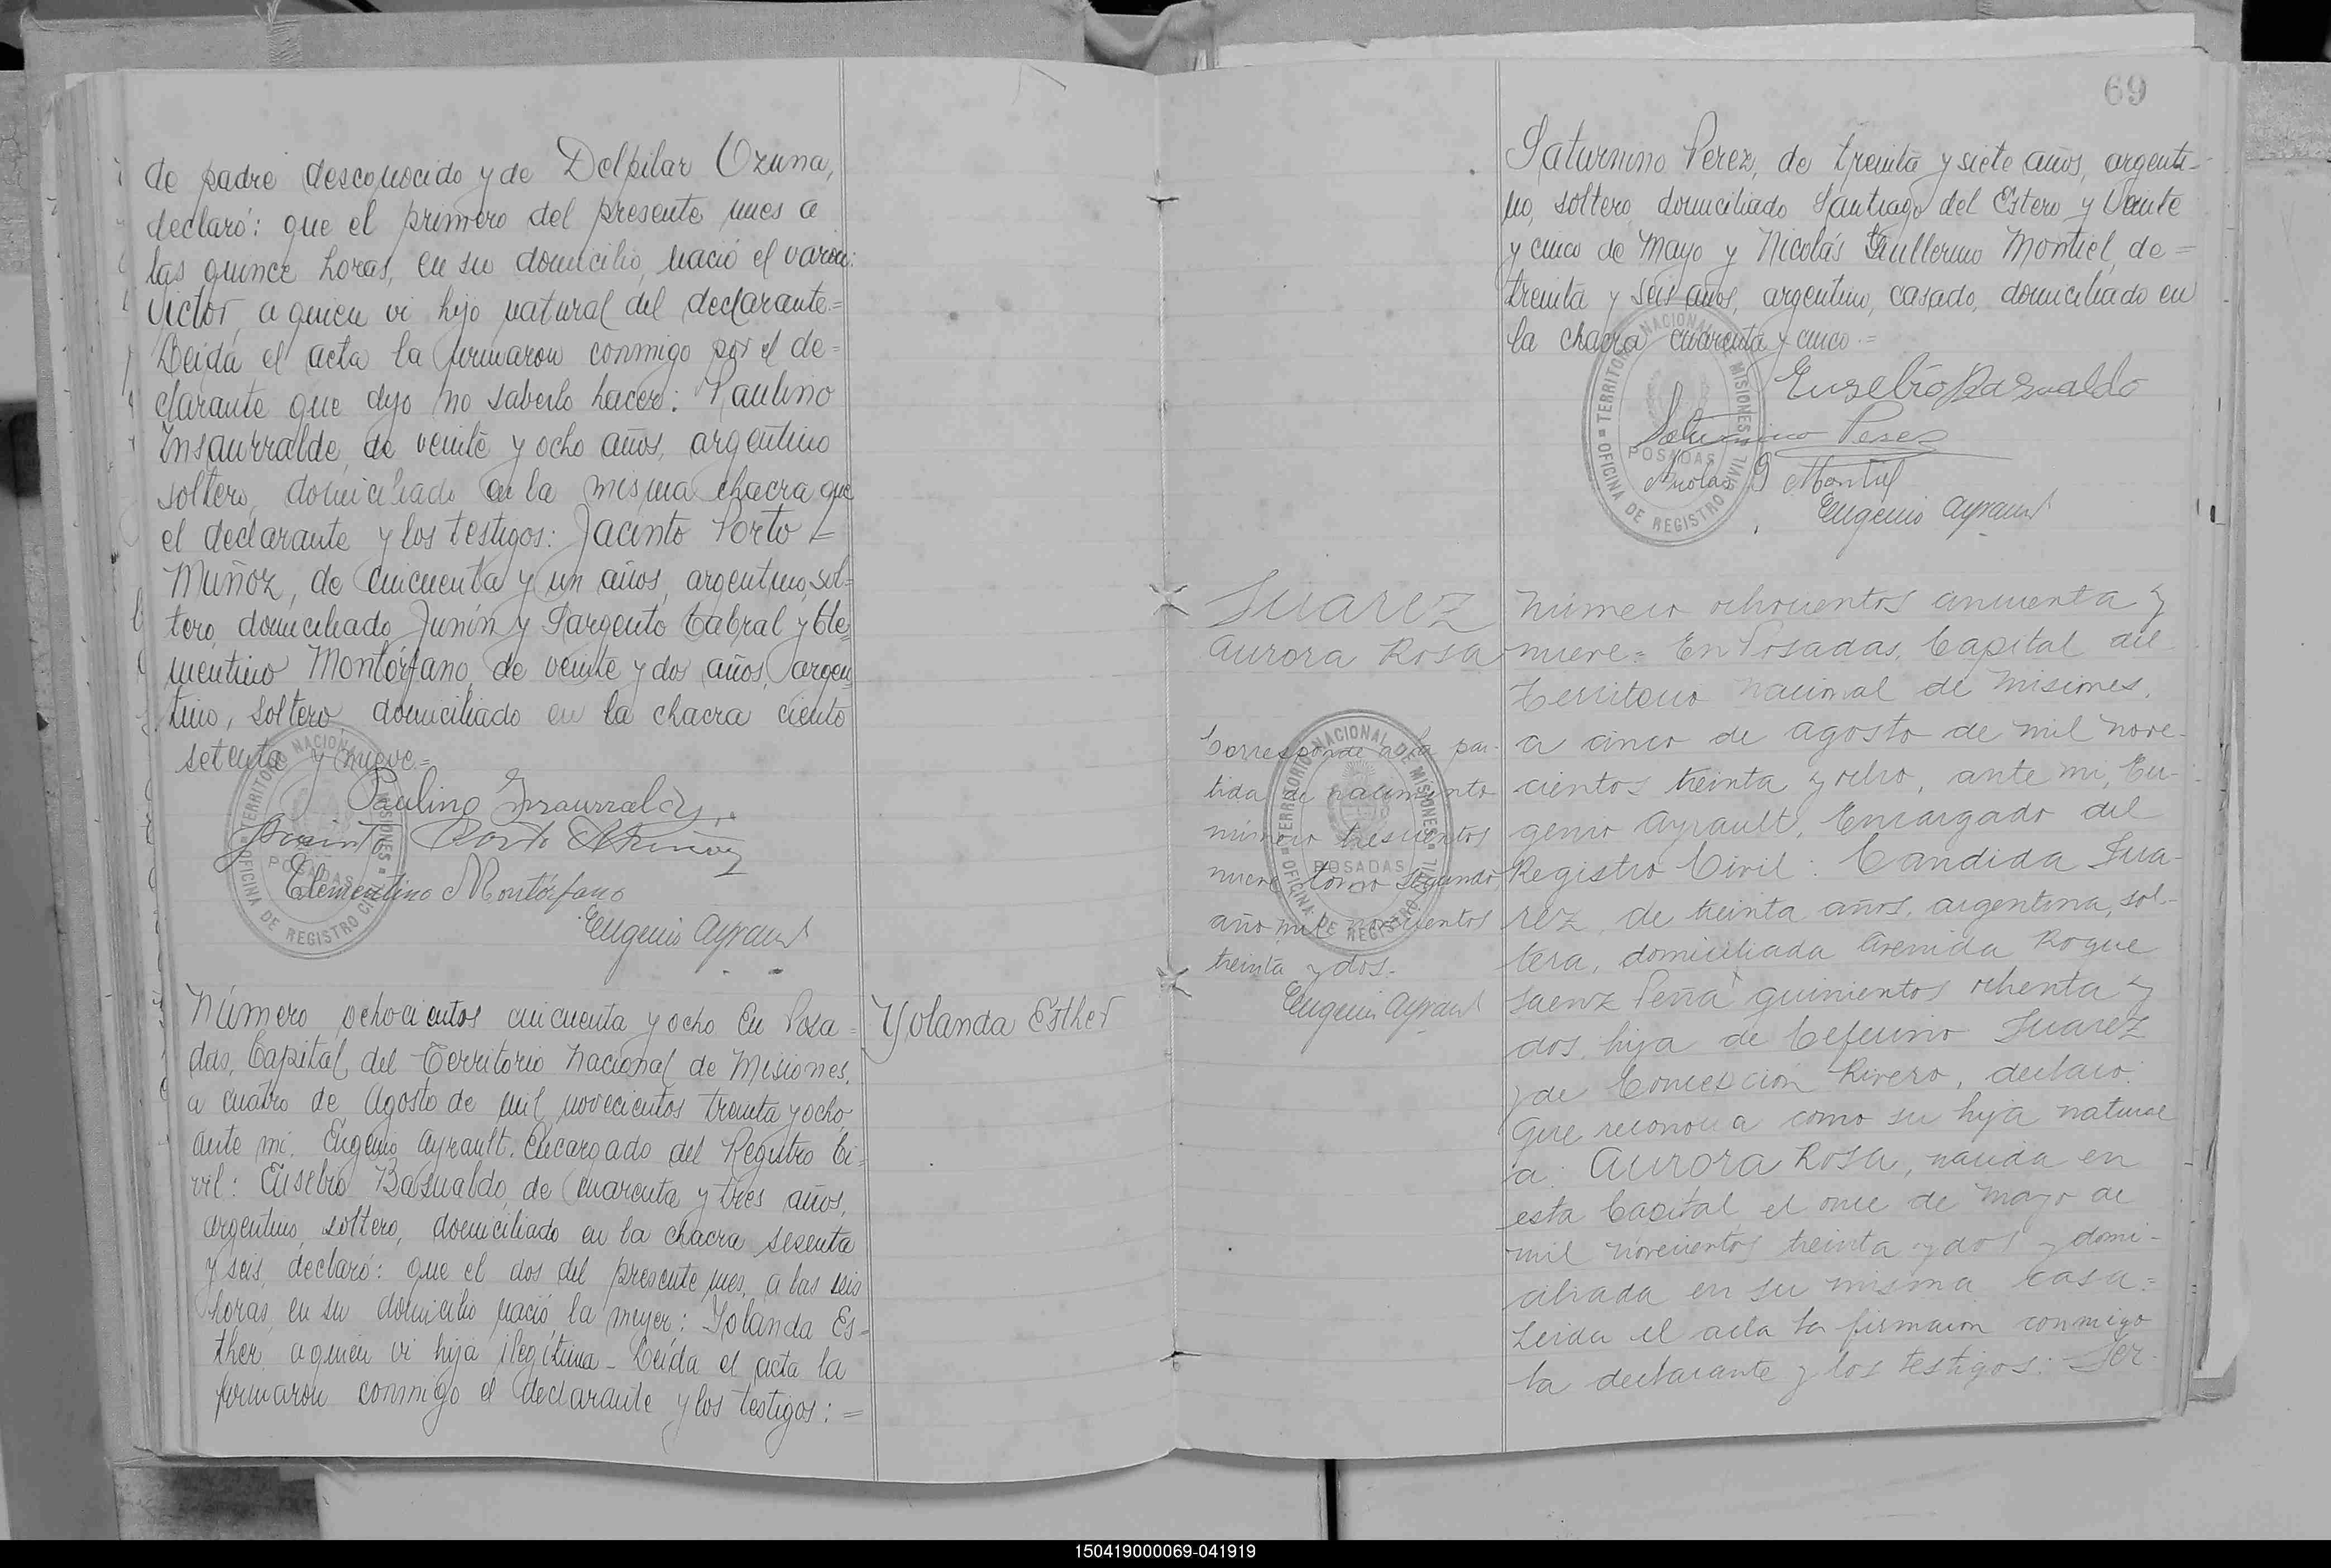 de padre desconocido y de Delpilar Ozuna,
declaró: que el primero del presente mes a
las quince horas, en su domicilio, nació el varón:
Victor, a quien vi hijo natural del declarante.=
Leida el acta la firmaron conmigo por el de=
clarante que dijo no saberlo hacer: Paulino
Insaurralde, de veinte y ocho años, argentino
soltero, domiciliado en la misma chacra que
el declarante y los testigos: Jacinto Porto =
Muñoz, de cincuenta y un años, argentino, sol=
tero, domiciliado Junín y Sargento Cabral y Cle=
mentino Montórfano, de veinte y dos años, argen
tino, soltero domiciliado en la chacra ciento
setenta y nueve=
Paulino Insaurralde
Jacinto Porto Muñoz
Clementino Montórfano
Eugenio Ayrault
TERRITORIO NACIONAL DE MISIONES
POSADAS
OFICINA DE REGISTRO CIVIL
Número ochocientos cincuenta y ocho En Posa=
das, Capital del Territorio Nacional de Misiones,
a cuatro de Agosto de mil novecientos treinta y ocho,
ante mi, Eugenio Ayrault, Encargado del Registro Ci=
vil: Eusebio Basualdo, de cuarenta y tres años,
argentino, soltero, domiciliado en la chacra sesenta
y seis, declaró: que el dos del presente mes, a las seis
horas, en su domicilio nació la mujer: Yolanda Es=
ther, a quien vi hija ilegítima_ Leida el acta la
firmaron conmigo el declarante y los testigos: =
Yolanda Esther
69
Saturnino Perez, de treinta y siete años, argenti=
no, soltero, domiciliado Santiago del Estero y Veinte
y cinco de Mayo y Nicolás Guillermo Montiel, de=
treinta y seis años, argentino, casado, domiciliado en
la chacra cuarenta y cinco.=
Eusebio Basualdo
Saturnino Perez
Nicolas G Montiel
Eugenio Ayrault
TERRITORIO NACIONAL DE MISIONES
POSADAS
OFICINA DE REGISTRO CIVIL
Suarez
Aurora Rosa
Corresponde a la par-
tida de nacimiento
número trescientos
nueve tomo segundo
año mil novecientos
treinta y dos.-
Eugenio Ayrault
TERRITORIO NACIONAL DE MISIONES
POSADAS
OFICINA DE REGISTRO CIVIL
Número ochocientos cincuenta y
nueve= En Posadas, Capital del
Territorio Nacional de Misiones,
a cinco de Agosto de mil nove-
cientos treinta y ocho, ante mi, Eu-
genio Ayrault, Encargado del
Registro Civil: Candida Sua-
rez, de treinta años, argentina, sol-
tera, domiciliada Avenida Roque
Saenz Peña quinientos ochenta y
dos, hija de Ceferino Suarez
y de Concepción Rivero, declaró:
Que reconocia como su hija natural
a: Aurora Rosa, nacida en
esta Capital el once de Mayo de
mil novecientos treinta y dos y domi-
ciliada en su misma casa.=
Leida el acta la firmaron conmigo
la declarante y los testigos: Ser-
150419000069-041919